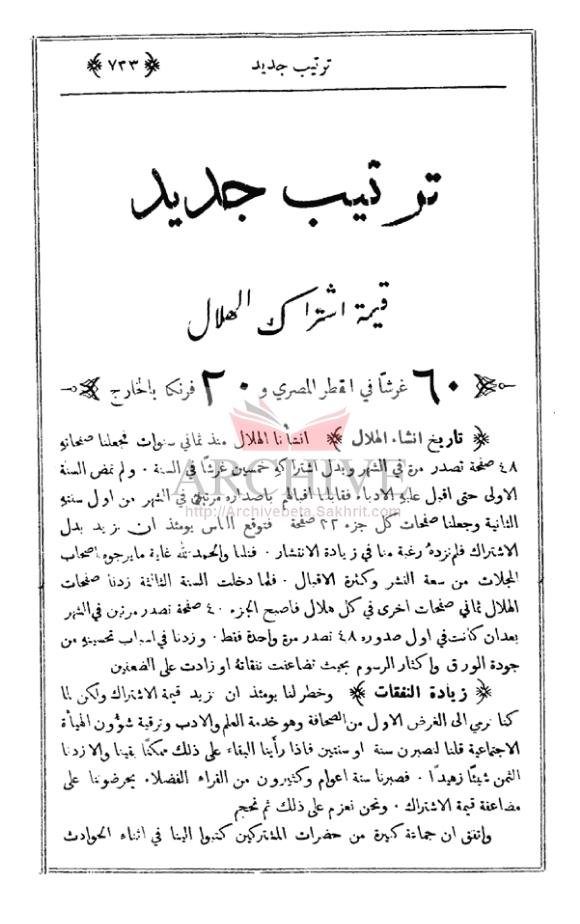 ترتيب جديد ﴿ ٧٣٣ ﴾
ترتيب جديد
قيمة اشتراك الهلال
٦٠ غرشاً في القطر المصري و ٢٠ فرنكا بالخارج
﴿ تاريخ انشاء الهلال ﴾ انشأنا الهلال منذ ثماني سنوات فجعلنا صفحاته
٤٨ صفحة تصدر مرة في الشهر وبدل اشتراكه خمسين غرشاً في السنة ٠ ولم تمض السنة
الاولى حتى اقبل عليه الادباء فقابلنا اقبالهم باصداره مرتين في الشهر من اول سنته
الثانية وجعلنا صفحات كل جزء ٣٢ صفحة فتوقع الناس يومئذ ان نزيد بدل
الاشتراك فلم نزده رغبة منا في زيادة الانتشار ٠ فنلنا والحمد لله غاية ما يرجوه اصحاب
المجلات من سعة النشر وكثرة الاقبال ٠ فلما دخلت السنة الثالثة زدنا صفحات
الهلال ثماني صفحات اخرى في كل هلال فاصبح الجزء ٤٠ صفحة تصدر مرتين في الشهر
بعد ان كانت في اول صدوره ٤٨ تصدر مرة واحدة فقط ٠ وزدنا في اسباب تحسينه من
جودة الورق واكثار الرسوم بحيث تضاعفت نفقاتة او زادت على الضعفين
﴿ زيادة النفقات ﴾ وخطر لنا يومئذ ان نزيد قيمة الاشتراك ولكن لما
كنا نرمي الى الغرض الاول من الصحافة وهو خدمة العلم والادب وترقية شؤون الهيأة
الاجتماعية قلنا لنصبرن سنة او سنتين فاذا رأينا البقاء على ذلك ممكناً بقينا والا زدنا
الثمن شيئاً زهيداً ٠ فصبرنا ستة اعوام وكثيرون من القراء الفضلاء يحرضوننا على
مضاعفة قيمة الاشتراك ٠ ونحن نعزم على ذلك ثم نحجم
واتفق ان جماعة كبيرة من حضرات المشتركين كتبوا الينا في اثناء الحوادث
ARCHIVE
http://Archivebeta.Sakhrit.com